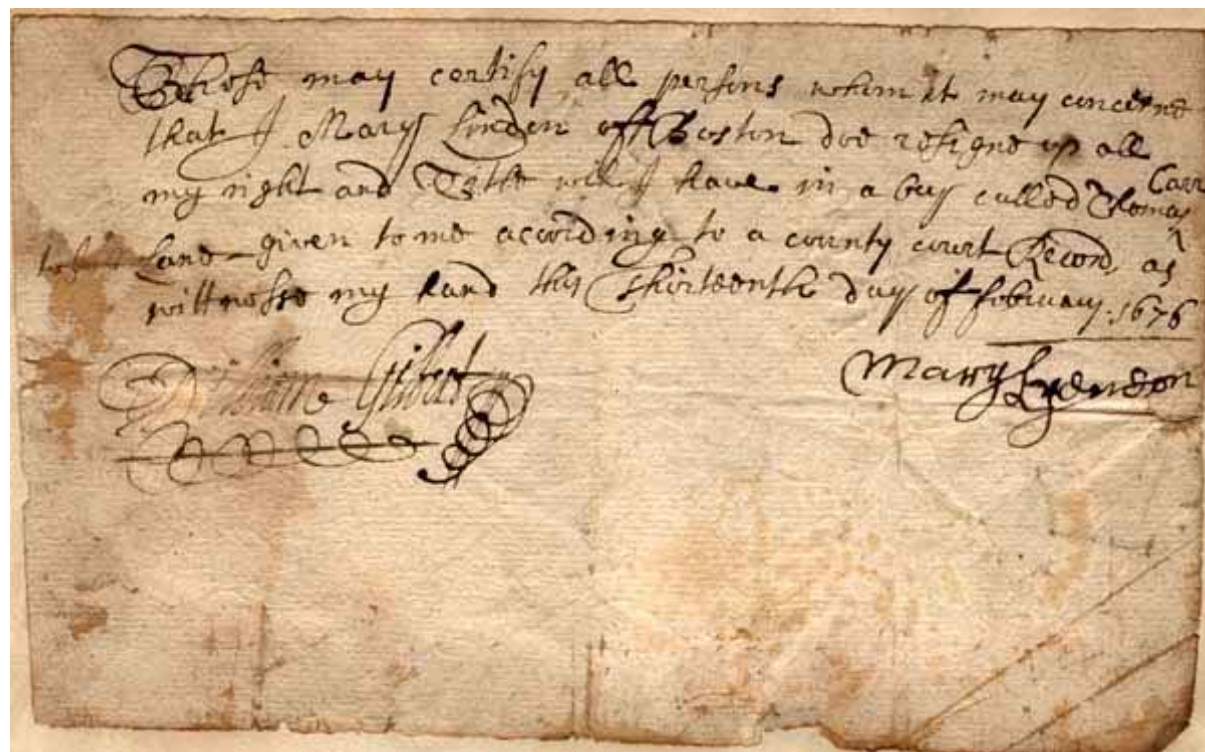 These may certify all persons whom it may concerne
that I Mary Linden off Boston doe resigne up all
my right and Tytle wch I have in a boy called Thomas Carr
Land given to me according to a county court Record, as
wittnesse my hand this Thirteenth day off february. 1676
William Gilbert
Mary Lyendon